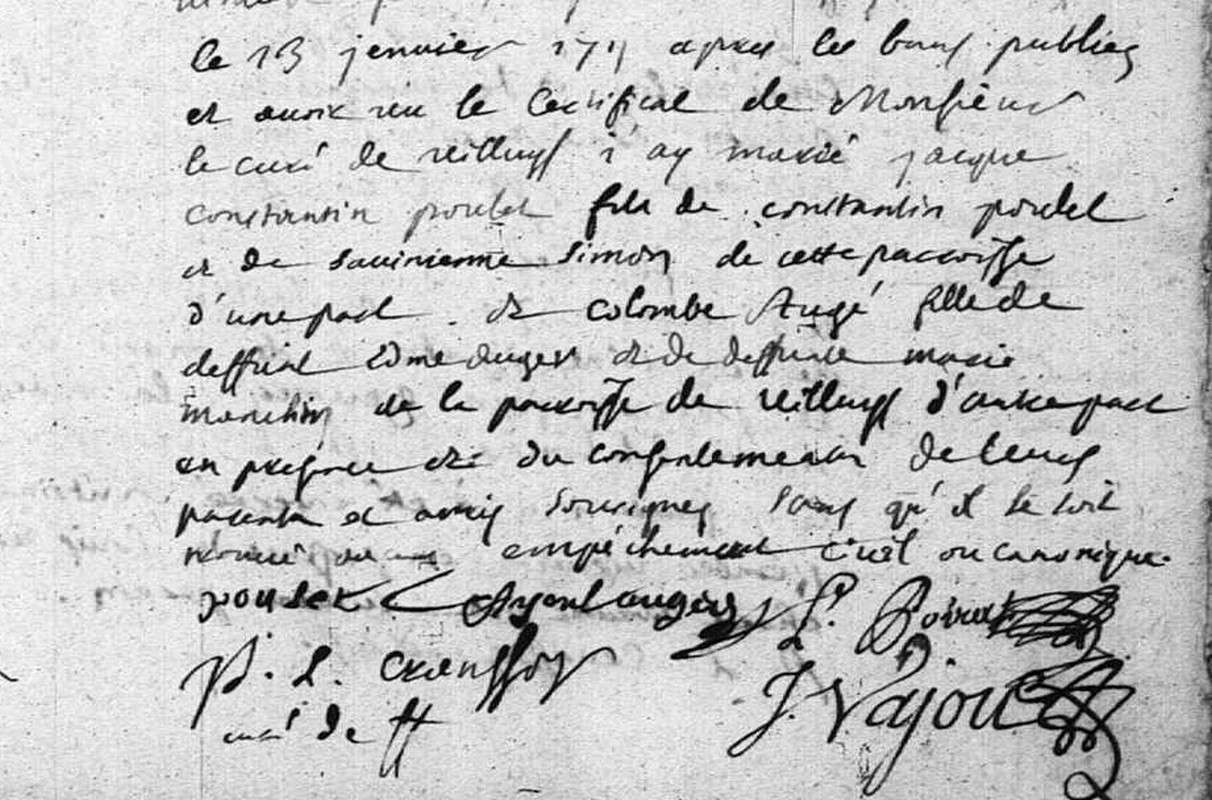 le 13 janvier apres les bans publies
et avoir veu le Certificat de Monsieur
le curé de j'ay marié jacque
constantin poulet fils de constantin poulet
et de savinienne Simon de cette parroisse
d'une part et colombe Augé fille de
deffunt Edme Auger et de deffunte marie
de la parroisse de d'autre part
en presence et du consentement de leurs
parents et amis sousignes sans qu'il se soit
trouvé aucun empéchement civil ou canonique.
poulet auger
P. L.
curé de J. Vajou